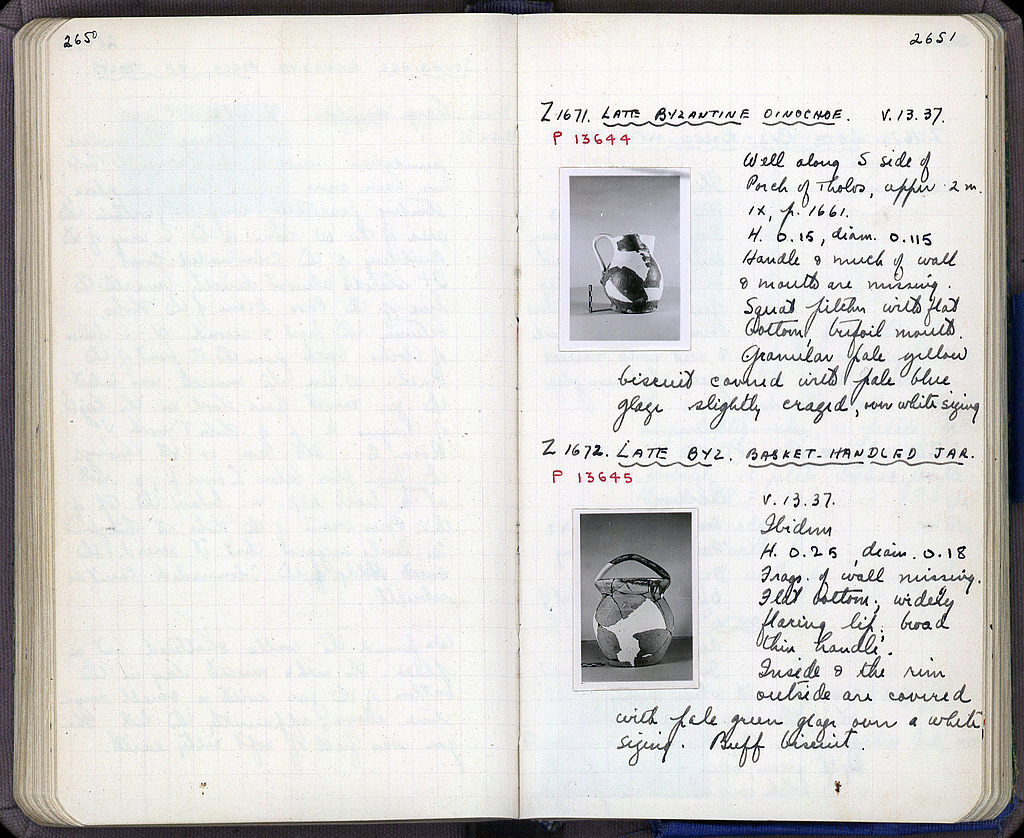 2650
2651
Z 1671. LATE BYZANTINE OINOCHOE. V.13.37.
P 13644
Well along S side of
Porch of Tholos, upper 2 m.
IX, p. 1661.
H. 0.15, diam. 0.115
Handle & much of wall
& mouth are missing.
Squat pitcher with flat
bottom, trefoil mouth.
Granular pale yellow
biscuit covered with pale blue
glaze slightly crazed, over white sizing
Z 1672. LATE BYZ. BASKET-HANDLED JAR.
P 13645
V.13.37.
Ibidem
H. 0.25, diam. 0.18
Frags. of wall missing.
Flat bottom; widely
flaring lip; broad
thin handle.
Inside & the rim
outside are covered
with pale green glaze over a white
sizing. Buff biscuit.